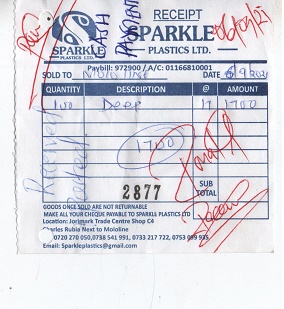 RECEIPT
SPARKLE
PLASTICS LTD.
SPARKLE
PLASTICS LTD.
CASH
PAYMENT
06/09/21
Paybill: 972900 / A/C: 01166810001
SOLD TO
DATE 6/9/2021
QUANTITY DESCRIPTION @ AMOUNT
100 Deep 17 1700
1700
Received
2877
SUB
TOTAL
GOODS ONCE SOLD ARE NOT RETURNABLE
MAKE ALL YOUR CHEQUE PAYABLE TO SPARKLE PLASTICS LTD
Location: Jorimark Trade Centre Shop C4
Charles Rubia Next to Mololine
0720 270 050,0738 541 991, 0733 217 722, 0753 099 935
Email: Sparkleplastics@gmail.com